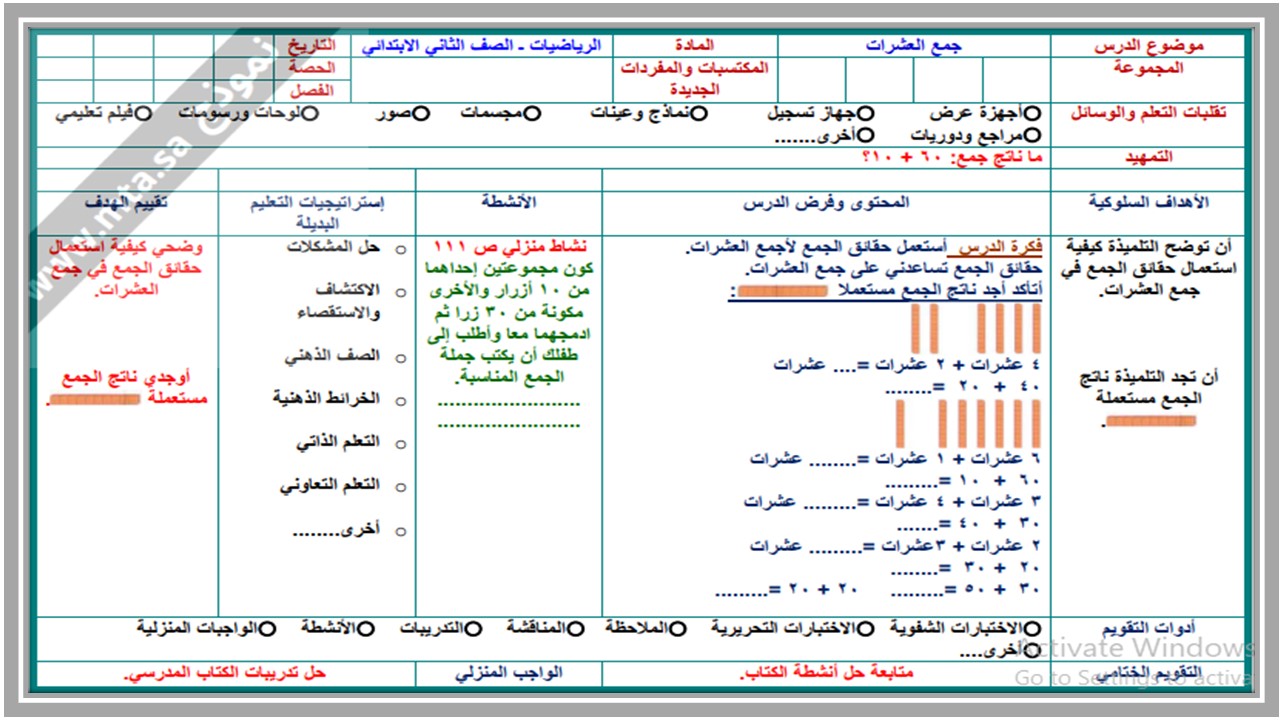 موضوع الدرس
جمع العشرات
المادة
الرياضيات ـ الصف الثاني الابتدائي
التاريخ
المجموعة
المكتسبات والمفردات
الجديدة
الحصة
الفصل
تقليات التعلم والوسائل
أجهزة عرض
جهاز تسجيل
نماذج وعينات
مجسمات
صور
لوحات ورسومات
فيلم تعليمي
مراجع ودوريات
أخرى.......
التمهيد
ما ناتج جمع: ٦٠ + ١٠؟
الأهداف السلوكية
المحتوى وفرض الدرس
الأنشطة
إستراتيجيات التعليم
البديلة
تقييم الهدف
أن توضح التلميذة كيفية
استعمال حقائق الجمع في
جمع العشرات.
أن تجد التلميذة ناتج
الجمع مستعملة
.
فكرة الدرس أستعمل حقائق الجمع لأجمع العشرات.
حقائق الجمع تساعدني على جمع العشرات.
أتأكد أجد ناتج الجمع مستعملا :
٤ عشرات + ٢ عشرات =.... عشرات
٤٠ + ٢٠ =........
٦ عشرات + ١ عشرات =........ عشرات
٦٠ + ١٠ =.........
٣ عشرات + ٤ عشرات =........ عشرات
٣٠ + ٤٠ =.......
٢ عشرات + ٣عشرات =......... عشرات
٢٠ + ٣٠ =........
٣٠ + ٥٠ =......... ٢٠ + ٢٠ =.........
نشاط منزلي ص ١١١
كون مجموعتين إحداهما
من ١٠ أزرار والأخرى
مكونة من ٣٠ زرا ثم
ادمجهما معا وأطلب إلى
طفلك أن يكتب جملة
الجمع المناسبة.
........................
........................
حل المشكلات
الاكتشاف
والاستقصاء
الصف الذهني
الخرائط الذهنية
التعلم الذاتي
التعلم التعاوني
أخرى........
وضحي كيفية إستعمال
حقائق الجمع في جمع
العشرات.
أوجدي ناتج الجمع
مستعملة .
أدوات التقويم
الاختبارات الشفوية
الاختبارات التحريرية
الملاحظة
المناقشة
التدريبات
الأنشطة
الواجبات المنزلية
أخرى....
التقويم الختامي
متابعة حل أنشطة الكتاب.
الواجب المنزلي
حل تدريبات الكتاب المدرسي.
نموذج www.mta.sa
Activate Windows
Go to Settings to activa